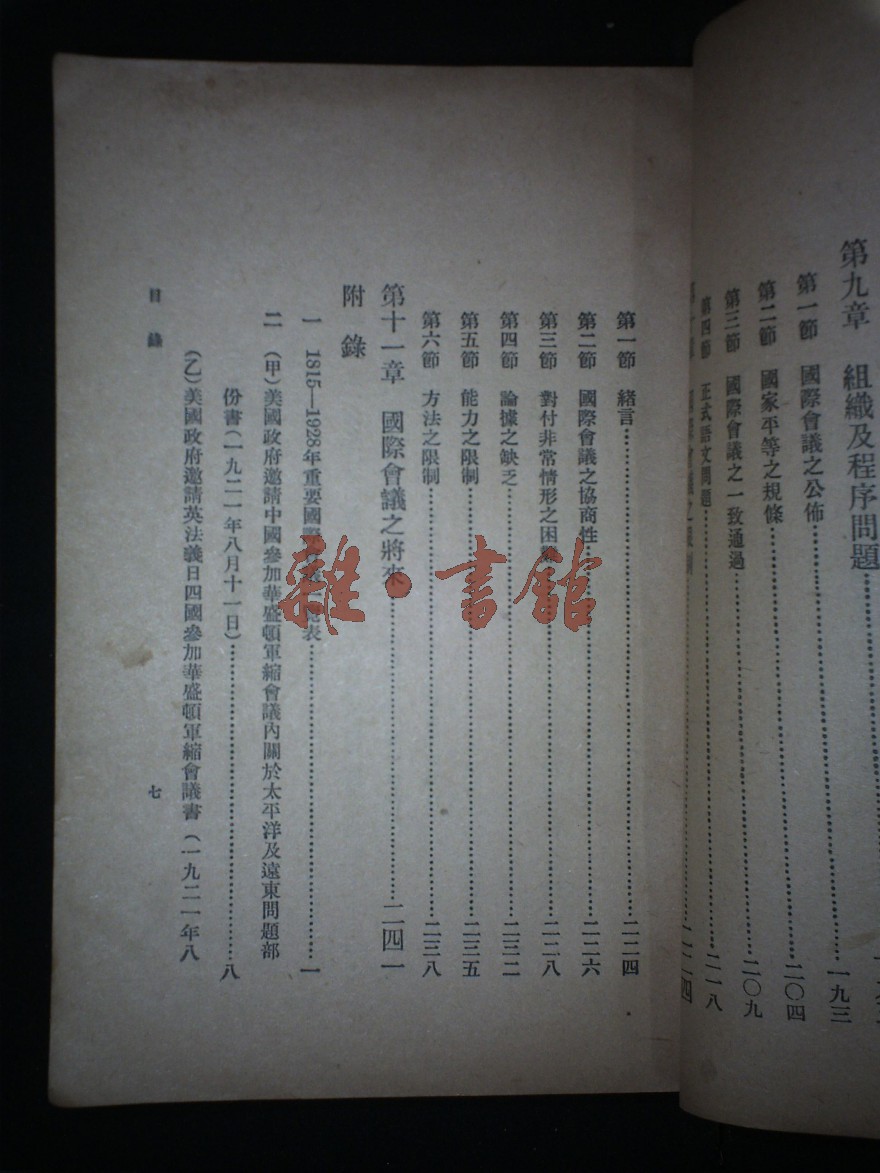 第九章 組織及程序問題
第一節 國際會議之公佈……一九三
第二節 國家平等之規條……二〇四
第三節 國際會議之一致通過……二〇九
第四節 正式語文問題……二一八
第一節 緒言……二二四
第二節 國際會議之協商性……二二六
第三節 對付非常情形之困難……二二八
第四節 論據之缺乏……二三二
第五節 能力之限制……二三五
第六節 方法之限制……二三八
第十一章 國際會議之將來……二四一
附錄
一 1815—1928年重要國際會議一覽表……一
二 (甲)美國政府邀請中國參加華盛頓軍縮會議內關於太平洋及遠東問題部
份書(一九二一年八月十一日)……八
(乙)美國政府邀請英法義日四國參加華盛頓軍縮會議書(一九二一年八
目錄
七
雜·書館